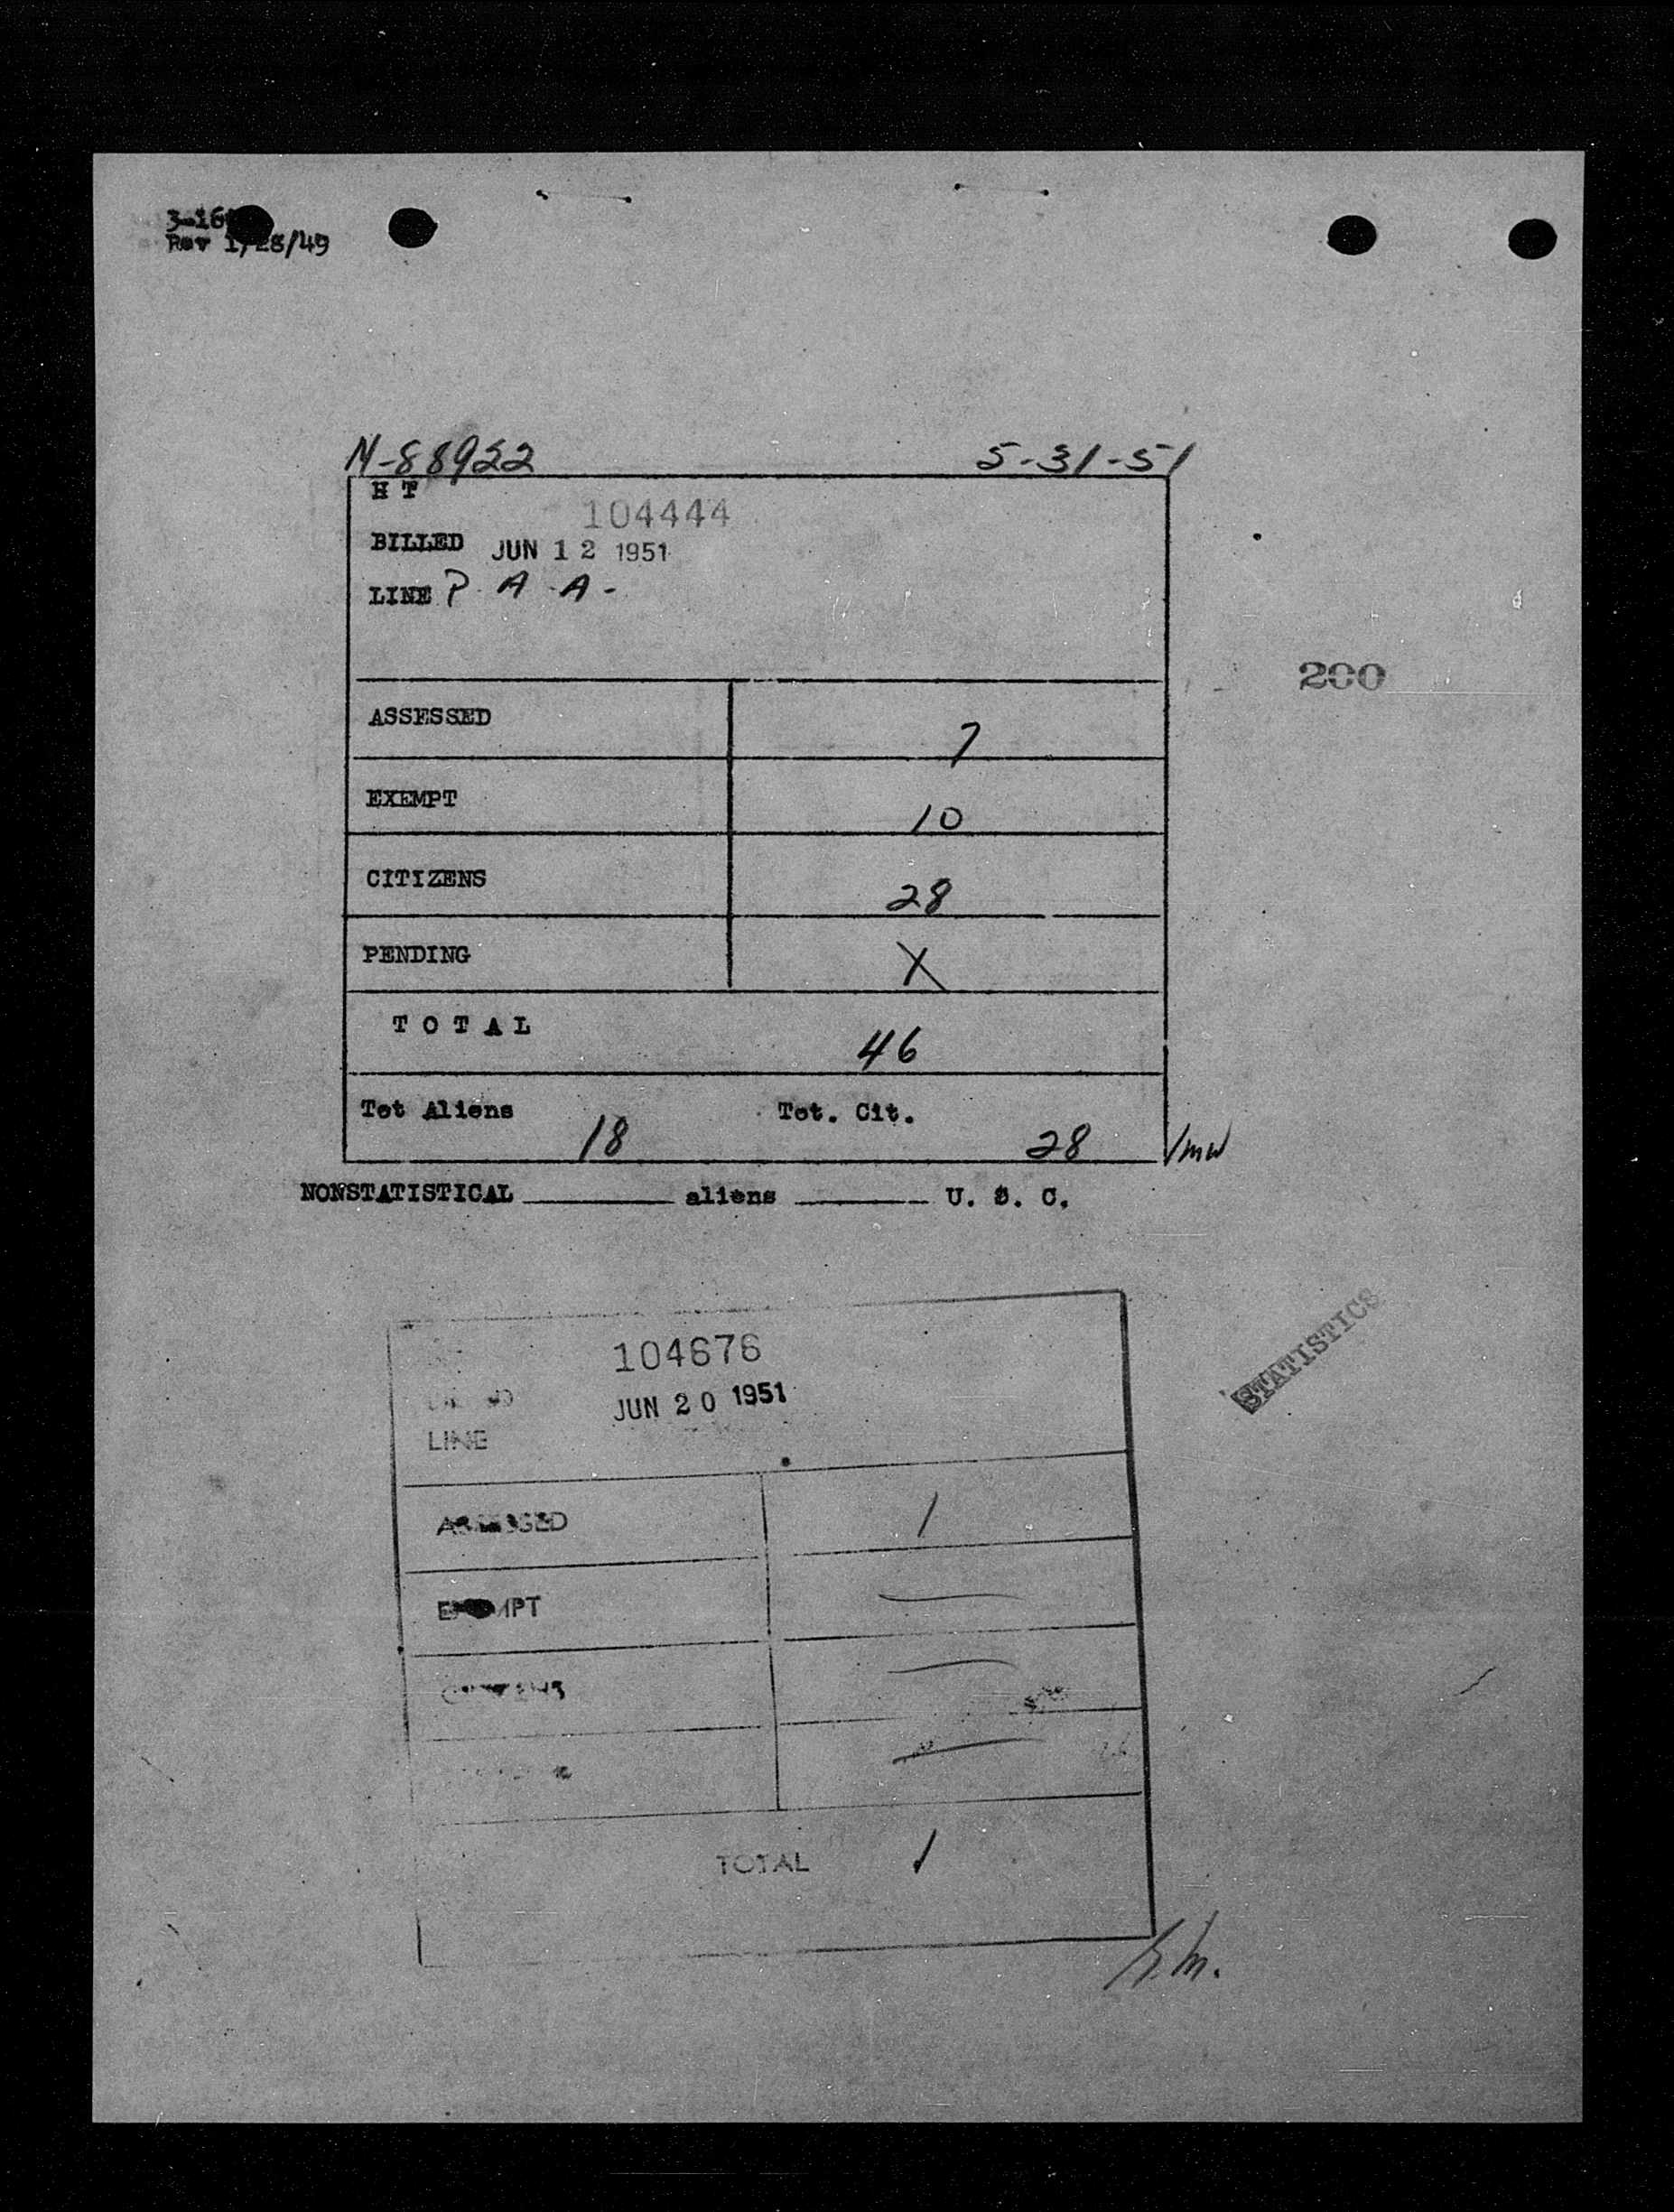 3-16
Rev 1/28/49
N-88922 5-31-51
H T
104444
BILLED JUN 12 1951
LINE P. A. A.
200
ASSESSED 7
EXEMPT 10
CITIZENS 28
PENDING X
T O T A L 46
Tot Aliens 18 Tot. Cit. 28 /mw
NONSTATISTICAL ________ aliens ________ U. S. C.
STATISTICS
104676
JUN 20 1951
LINE
ASSESSED 1
EXEMPT —
CITIZENS —
—
TOTAL 1